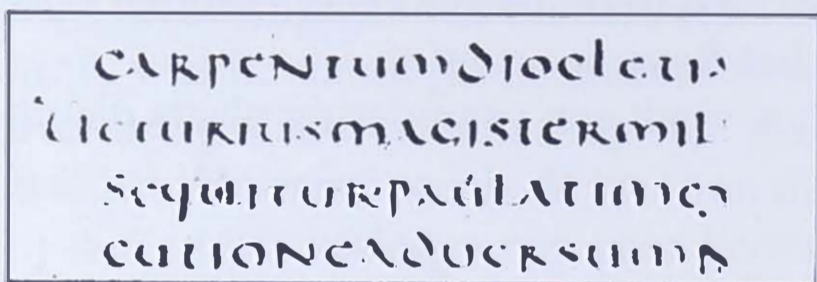 carpentumdiocleti
uicturiusmagistermil
sequiturpaulatime
cutioneaduersum